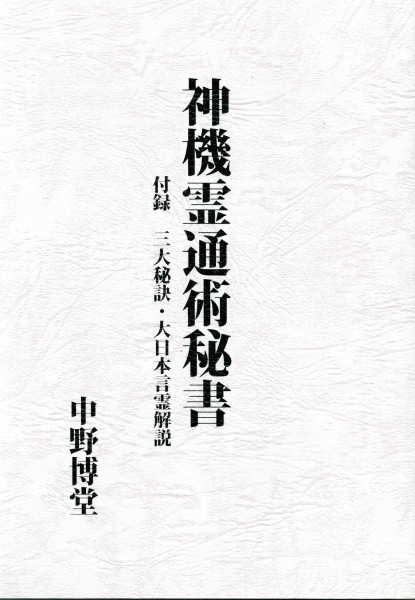 神機霊通術秘書
付録　三大秘訣・大日本言霊解説
中野博堂